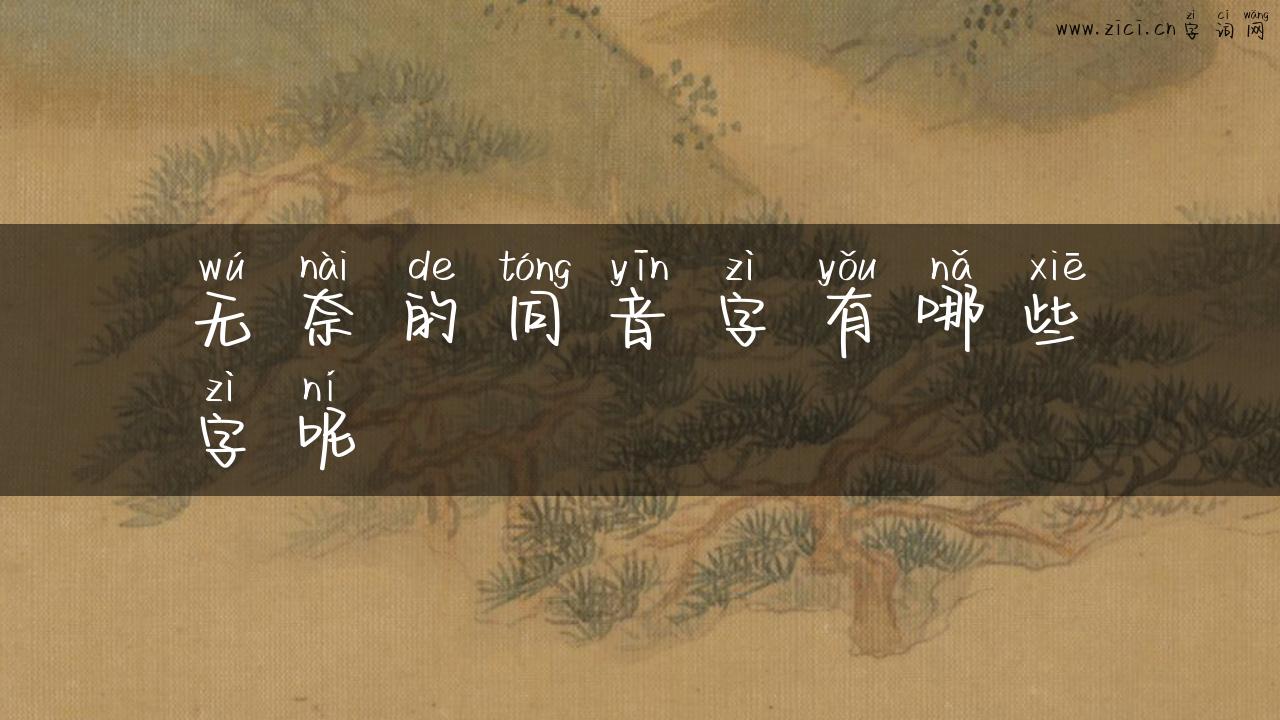 zì cí wǎng
www.zici.cn 字 词 网
wú nài de tóng yīn zì yǒu nǎ xiē
无 奈 的 同 音 字 有 哪 些
zì ní
字 呢